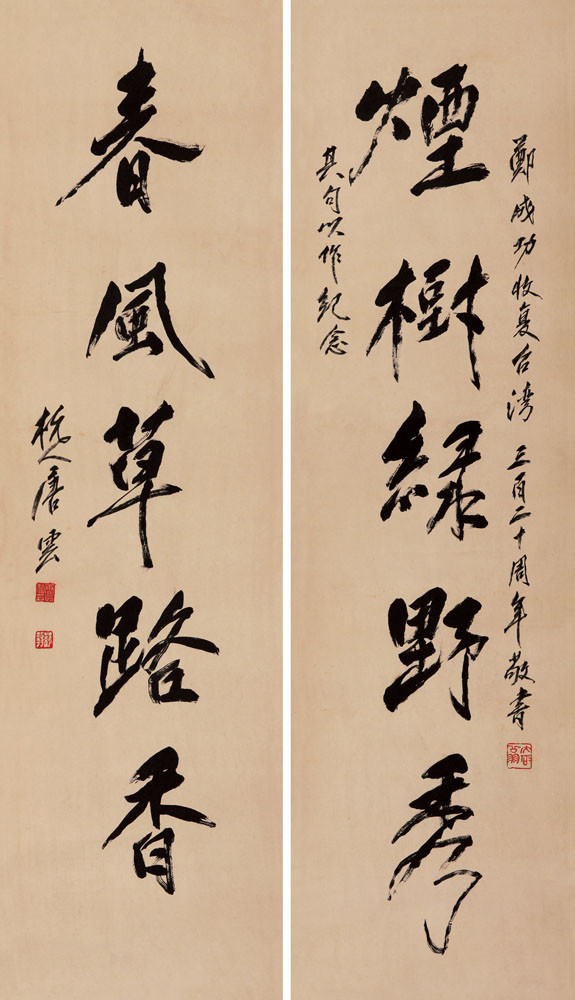 鄭成功收复台湾 三百二十周年敬書
煙樹綠野秀
其句以作紀念
春風草路香
杭人唐雲